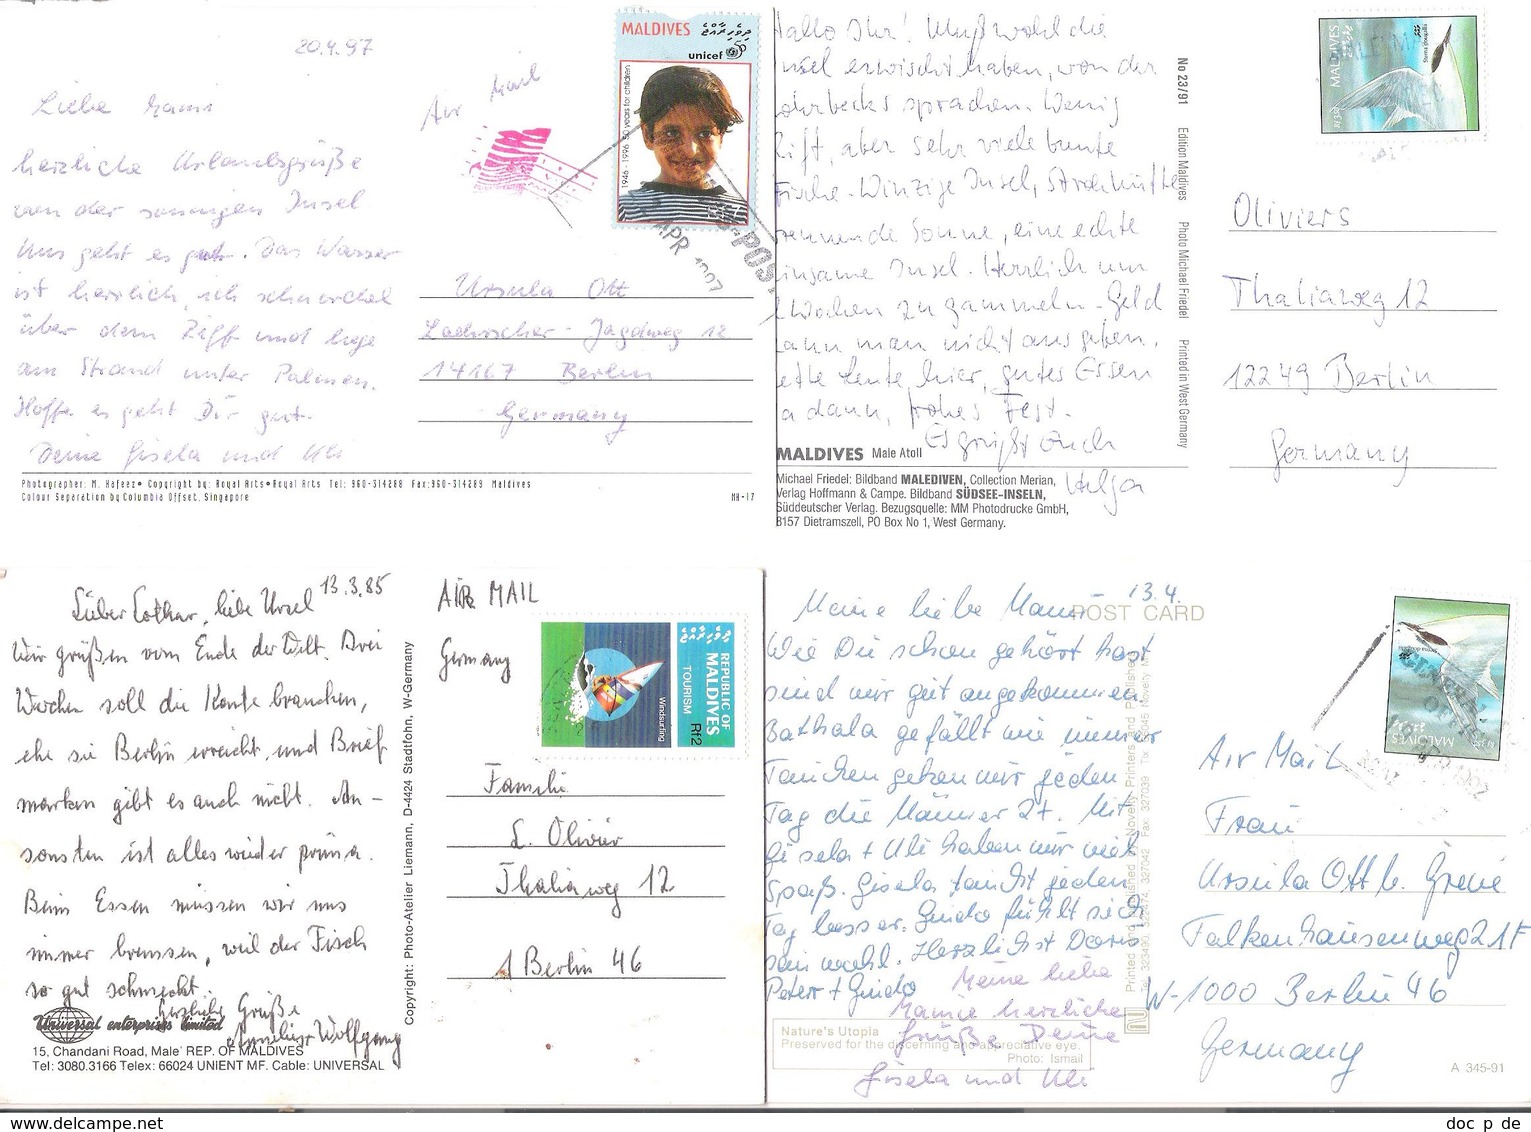 20.4.97
Liebe Mami
Air Mail
herzliche Urlaubsgrüße
von der sonnigen Insel
Uns geht es gut. Das Wasser
ist herrlich, ich schnorchel
über dem Riff und liege
am Strand unter Palmen.
Hoffe es geht Dir gut.
Deine Gisela und Uli
MALDIVES
unicef
1946 - 1996 50 years for children
APR 1997
Ursula Ott
Jagdweg 12
14167 Berlin
Germany
Photographer: M. Hafeez • Copyright by: Royal Arts • Royal Arts Tel: 960-314288 Fax:960-314289 Maldives
Colour Separation by Columbia Offset, Singapore
MH-17
Hallo Ihr! Mußt wohl die
Insel erwischt haben, von der
sprachen. Wenig
Riff, aber sehr viele bunte
Fische. Winzige Insel, Strohhütte
brennende Sonne, eine echte
einsame Insel. Herrlich um
Wochen zu gammeln. Geld
kann man nicht ausgeben.
nette Leute, hier, gutes Essen
Na dann, frohes Fest.
Es grüßt Euch
Helga
MALDIVES Male Atoll
Michael Friedel: Bildband MALEDIVEN, Collection Merian,
Verlag Hoffmann & Campe. Bildband SÜDSEE-INSELN,
Süddeutscher Verlag. Bezugsquelle: MM Photodrucke GmbH,
8157 Dietramszell, PO Box No 1, West Germany.
No 23/91 Edition Maldives Photo Michael Friedel Printed in West Germany
MALDIVES
Oliviers
Thaliaweg 12
12249 Berlin
Germany
13.3.85
Lieber Lothar, liebe Ursel
Wir grüßen vom Ende der Welt. Drei
Wochen soll die Karte brauchen,
ehe sie Berlin erreicht und Brief
marken gibt es auch nicht. An-
sonsten ist alles wieder prima.
Beim Essen müssen wir uns
immer bremsen, weil der Fisch
so gut schmeckt.
Herzliche Grüße
Annelies + Wolfgang
Universal enterprises limited
15, Chandani Road, Male' REP. OF MALDIVES
Tel: 3080.3166 Telex: 66024 UNIENT MF. Cable: UNIVERSAL
Copyright: Photo-Atelier Liemann, D-4424 Stadtlohn, W-Germany
AIR MAIL
Germany
REPUBLIC OF
MALDIVES
TOURISM
Rf2
Windsurfing
Familie
L. Olivier
Thaliaweg 12
1 Berlin 46
13.4.
POST CARD
Meine liebe Mami
Wie Du schon gehört hast
sind wir gut angekommen
Bathala gefällt wie immer
Tauchen gehen wir jeden
Tag die Männer 2x. Mit
Gisela + Uli haben wir viel
Spaß. Gisela taucht jeden
Tag besser. Guido fühlt sich
sau wohl. Herzlichst Doris
Peter + Guido
Meine liebe
Mamie herzliche
Grüße Deine
Gisela und Uli
Nature's Utopia
Preserved for the discerning and appreciative eye.
Photo: Ismail
Printed and Published by Novelty Printers and Publishers
MALDIVES
Air Mail
Frau
Ursula Ott b. Greve
Falkenhausenweg 21F
W-1000 Berlin 46
Germany
A 345-91
doc p de